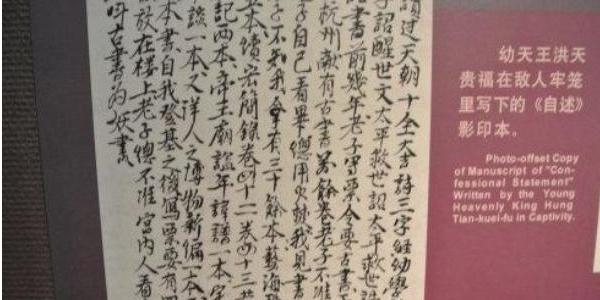 讀过天朝十全大吉詩三字經幼學
字詔醒世文太平救世詔太平救世
書前幾年老子寫票令要古書
杭州献有古書萬餘卷老子不准
子自己看畢總用火焚我見書
不知我拿有三十餘本藝海珠
本續宏簡錄卷四十二卷四十三共
記兩本帝王廟謚年諱譜一本
談一本又洋人之博物新編一本
本書自我登基之後寫票要有四
放在楼上老子總不准宮内人看
叫古書為妖書
幼天王洪天
贵福在敌人牢笼
里写下的《自述》
影印本。
Photo-offset Copy
of Manuscript of "Con-
fessional Statement"
Written by the Young
Heavenly King Hung
Tian-kuei-fu in Captivity.